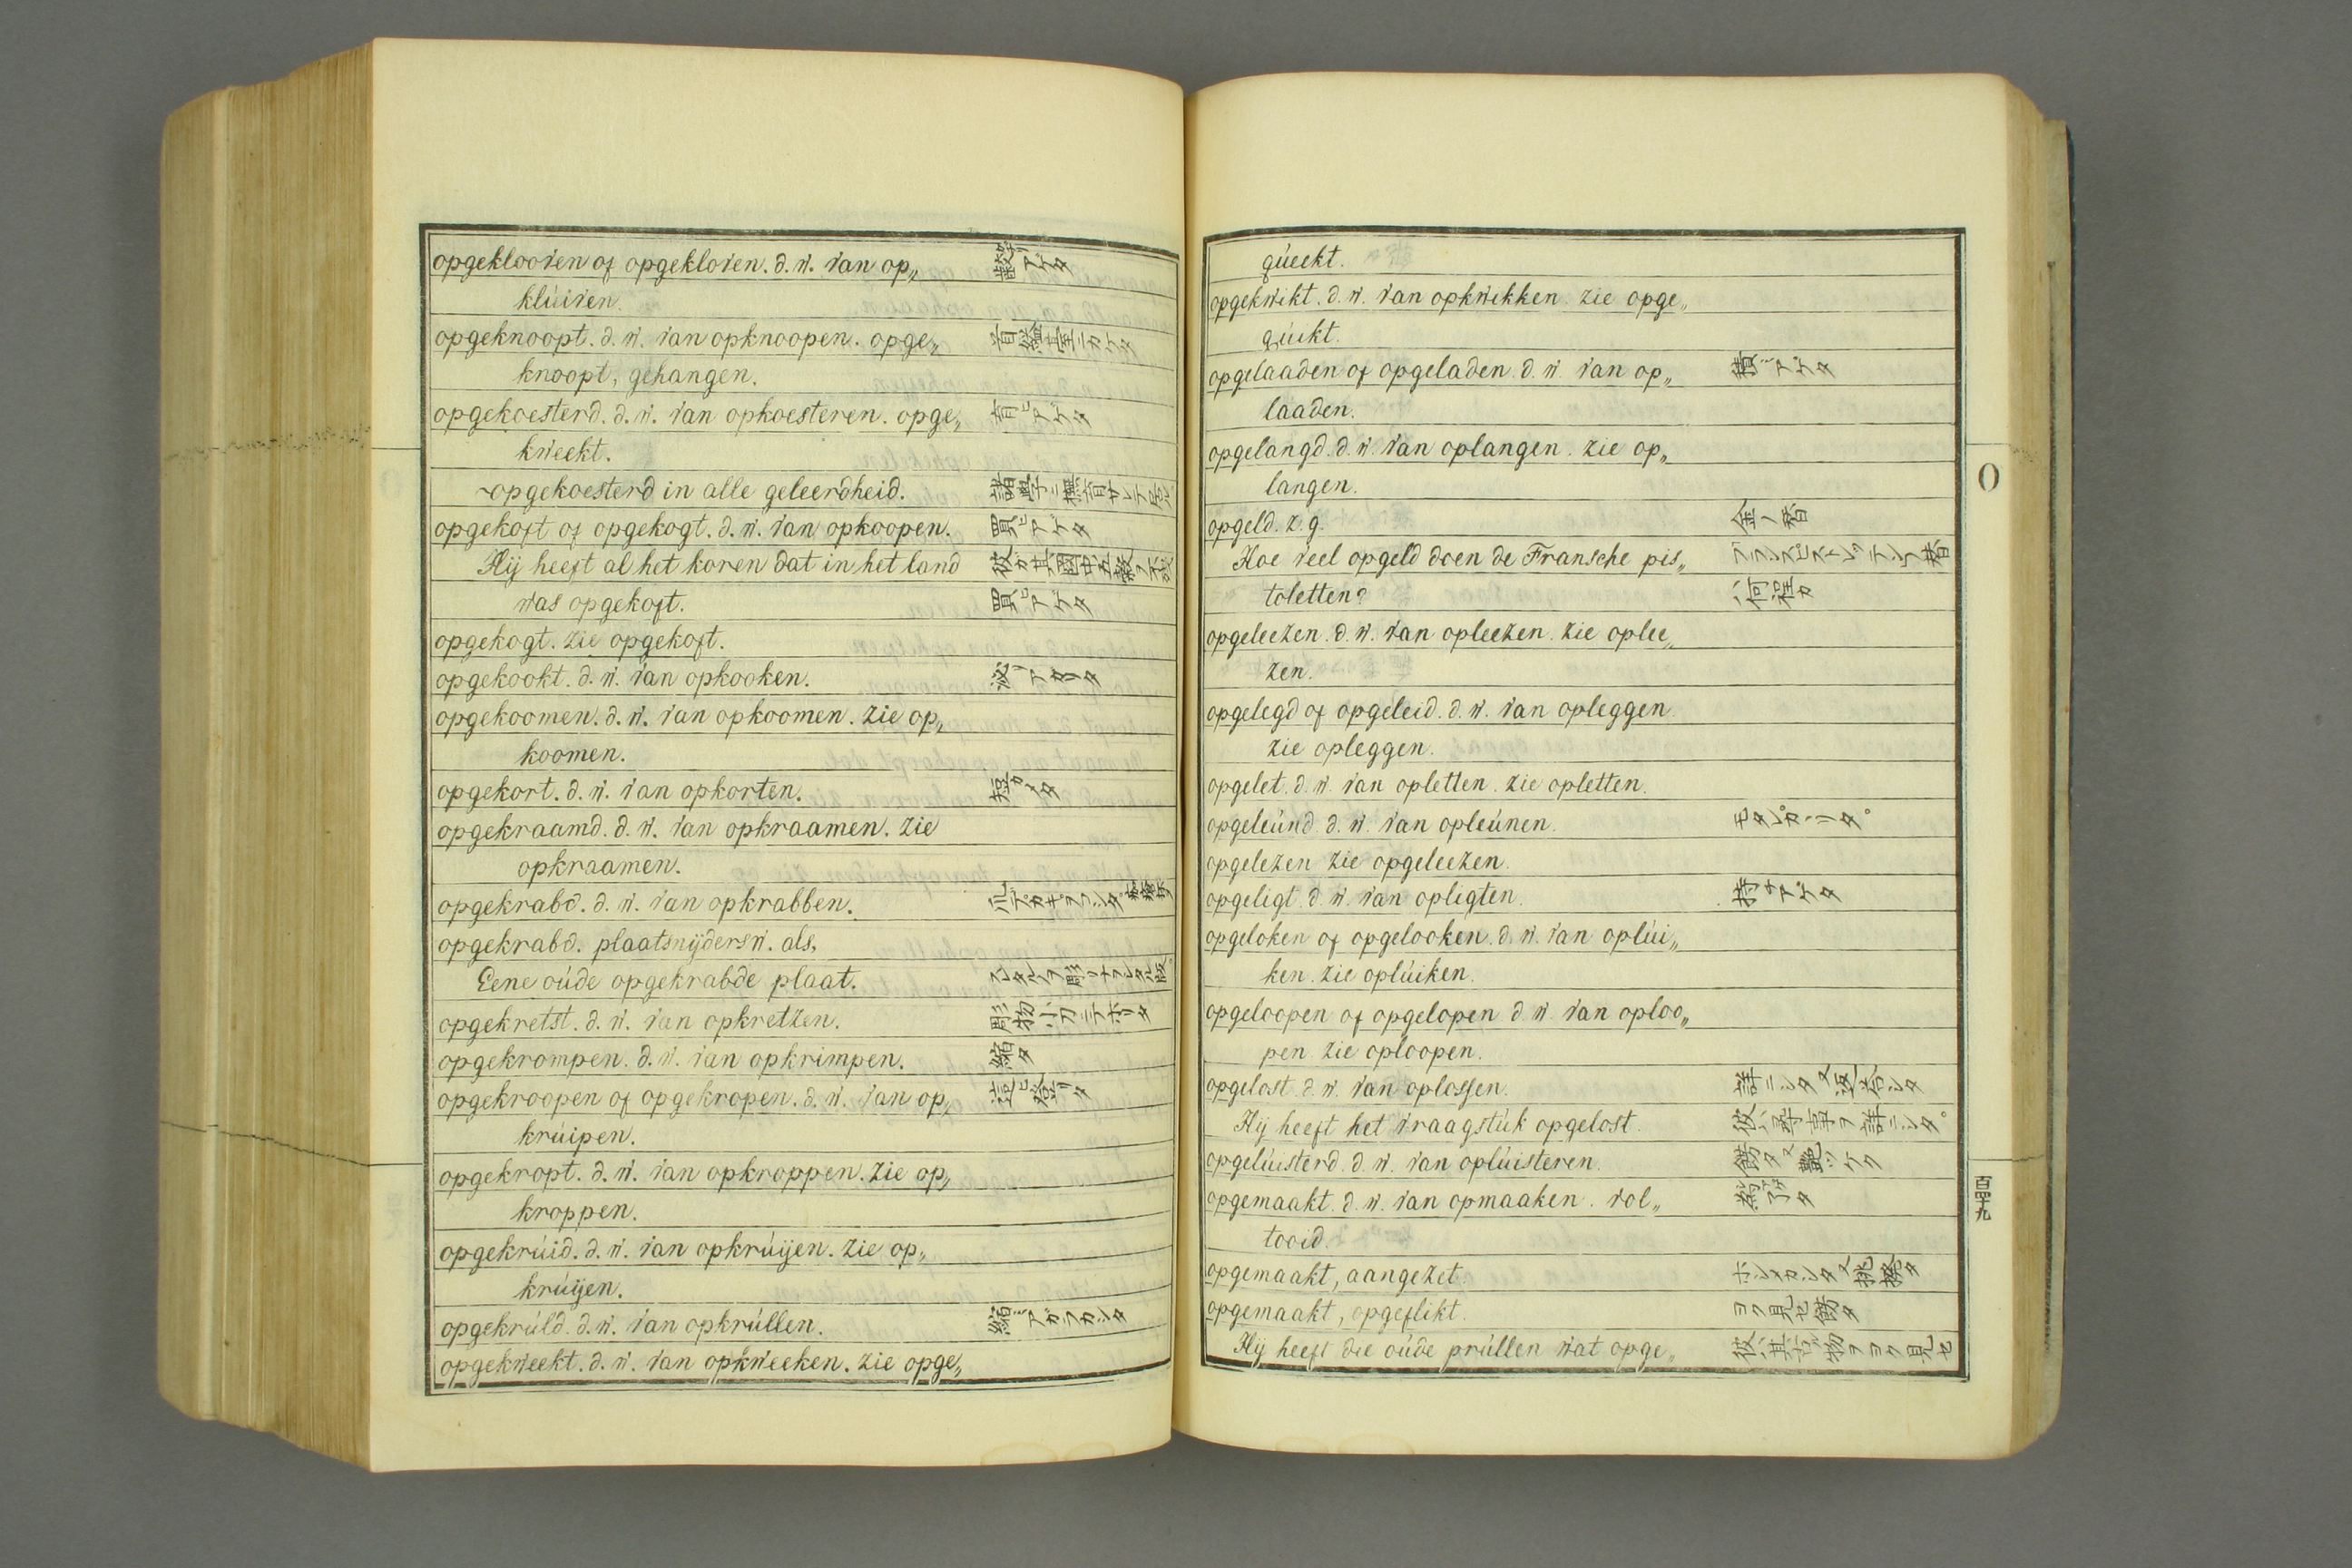 opgeklooven of opgekloven. d. w. van op„
klúiven.
opgeknoopt. d. w. van opknoopen. opge„
knoopt, gehangen.
opgekoesterd. d. w. van opkoesteren. opge„ 育ヒアゲタ
kweekt.
opgekoesterd in alle geleerdheid.
opgekoft of opgekogt. d. w. van opkoopen. 買ヒアゲタ
Hij heeft al het koren dat in het land
was opgekoft. 買ヒアゲタ
opgekogt. zie opgekoft.
opgekookt. d. w. van opkooken.
opgekoomen. d. w. van opkoomen. zie op„
koomen.
opgekort. d. w. van opkorten.
opgekraamd. d. w. van opkraamen. zie
opkraamen.
opgekrabd. d. w. van opkrabben.
opgekrabd. plaatsnijdersw. als,
Eene oúde opgekrabde plaat.
opgekretst. d. w. van opkretzen. 彫物小刀ニテホリタ
opgekrompen. d. w. van opkrimpen. 縮タ
opgekroopen of opgekropen. d. w. van op„
krúipen.
opgekropt. d. w. van opkroppen. zie op„
kroppen.
opgekrúid. d. w. van opkrúijen. zie op„
krúijen.
opgekrúld. d. w. van opkrúllen.
opgekweekt. d. w. van opkweeken. zie opge„
qúeekt.
opgekwikt. d. w. van opkwikken. zie opge„
qúikt.
opgelaaden of opgeladen. d. w. van op„ 積ミアゲタ
laaden.
opgelangd. d. w. van oplangen. zie op„
langen.
opgeld. z. g.
Hoe veel opgeld doen de Fransche pis„
toletten? ハ何程カ
opgeleezen. d. w. van opleezen. zie oplee„
zen.
opgelegd of opgeleid. d. w. van opleggen
zie opleggen.
opgelet. d. w. van opletten. zie opletten.
opgeleúnd. d. w. van opleúnen.
opgelezen zie opgeleezen.
opgeligt. d. w. van opligten. 持チアゲタ
opgeloken of opgelooken. d. w. van oplúi„
ken. zie oplúiken.
opgeloopen of opgelopen d. w. van oploo„
pen zie oploopen.
opgelost d. w. van oplossen.
Hij heeft het vraagstúk opgelost.
opgelúisterd. d. w. van oplúisteren.
opgemaakt. d. w. van opmaaken. vol„
tooid.
opgemaakt, aangezet.
opgemaakt, opgeflikt. ヨク見セ飾タ
Hij heeft die oúde prúllen wat opge„
O
百四十九